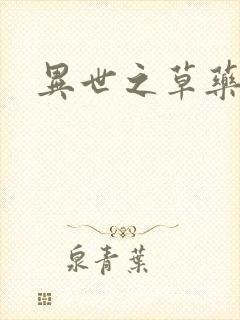 異世之草藥
泉青葉